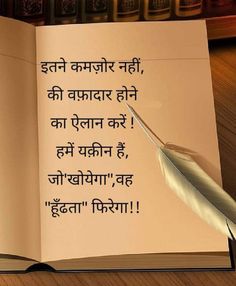 इतने कमज़ोर नहीं,
की वफ़ादार होने
का ऐलान करें !
हमें यक़ीन हैं,
जो'खोयेगा",वह
"ढूँढता" फिरेगा!!